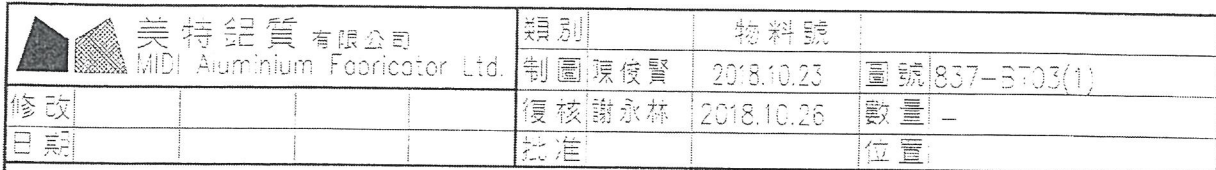 美特鋁質有限公司
MIDI Aluminium Fabricator Ltd.
類別 物料號
制圖 陳俊賢 2018.10.23 圖號 837-BT03(1)
修改 復核 謝永林 2018.10.26 數量 –
日期 批准 位置